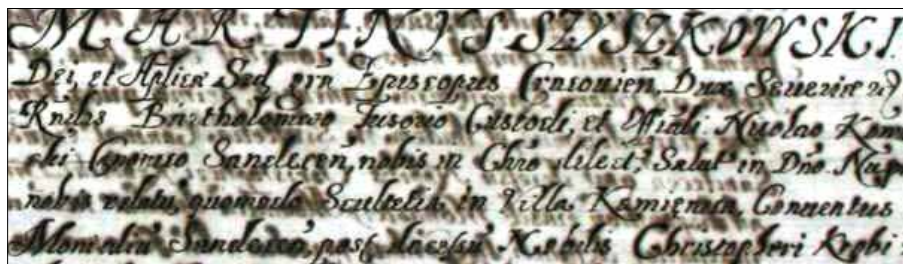 MARTINVS SZYSZKOWSKI.
Dei, et Aplicæ Sed, grã Episcopus Cracouien, Dux Seueriæ
Rndis Bartholomeo Fusorio Custodi, et Officiali Nicolao
ski Canonico Sandecen, nobis in Chro dilect, Salut in Dno.
nobis relatu, quomodo Scultetia in Villa Kamienica, Conuentus
Monialiu Sandecen, post decessu Nobilis Christopheri Krobi